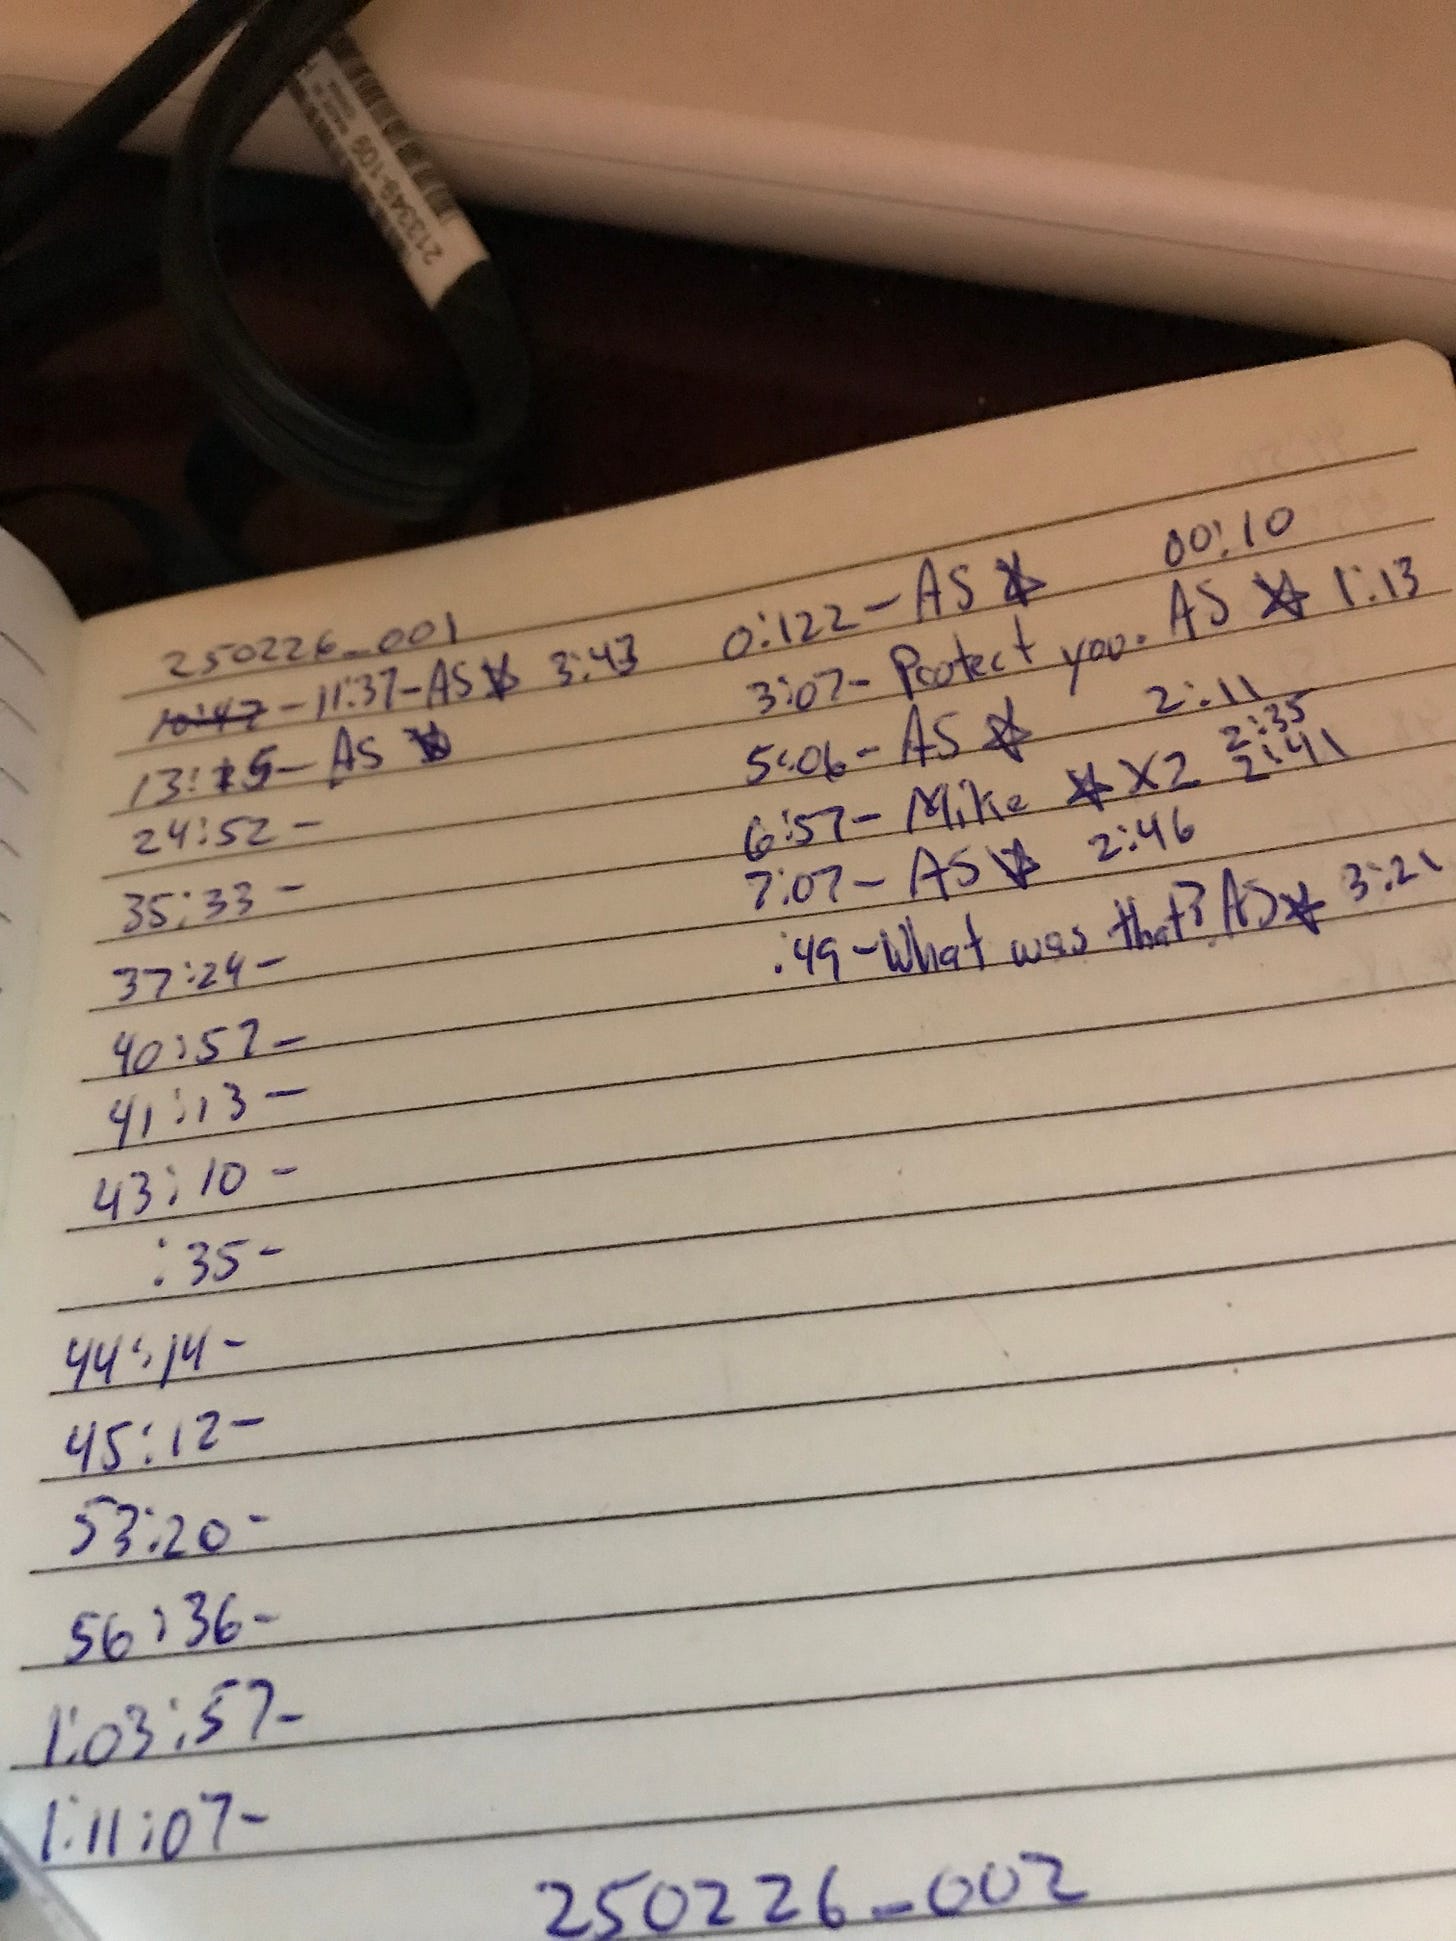 213349-109
250226_001
10:47 - 11:37 - AS ☆ 3:43
13:15 - AS ☆
24:52 -
35:33 -
37:24 -
40:57 -
41:13 -
43:10 -
:35 -
44:14 -
45:12 -
53:20 -
56:36 -
1:03:57 -
1:11:07 -
0:122 - AS ☆ 00:10
3:07 - Protect you. AS ☆ 1:13
5:06 - AS ☆ 2:11
6:57 - Mike ☆ X2 2:35 2:41
7:07 - AS ☆ 2:46
:49 - What was that? AS ☆ 3:21
250226_002